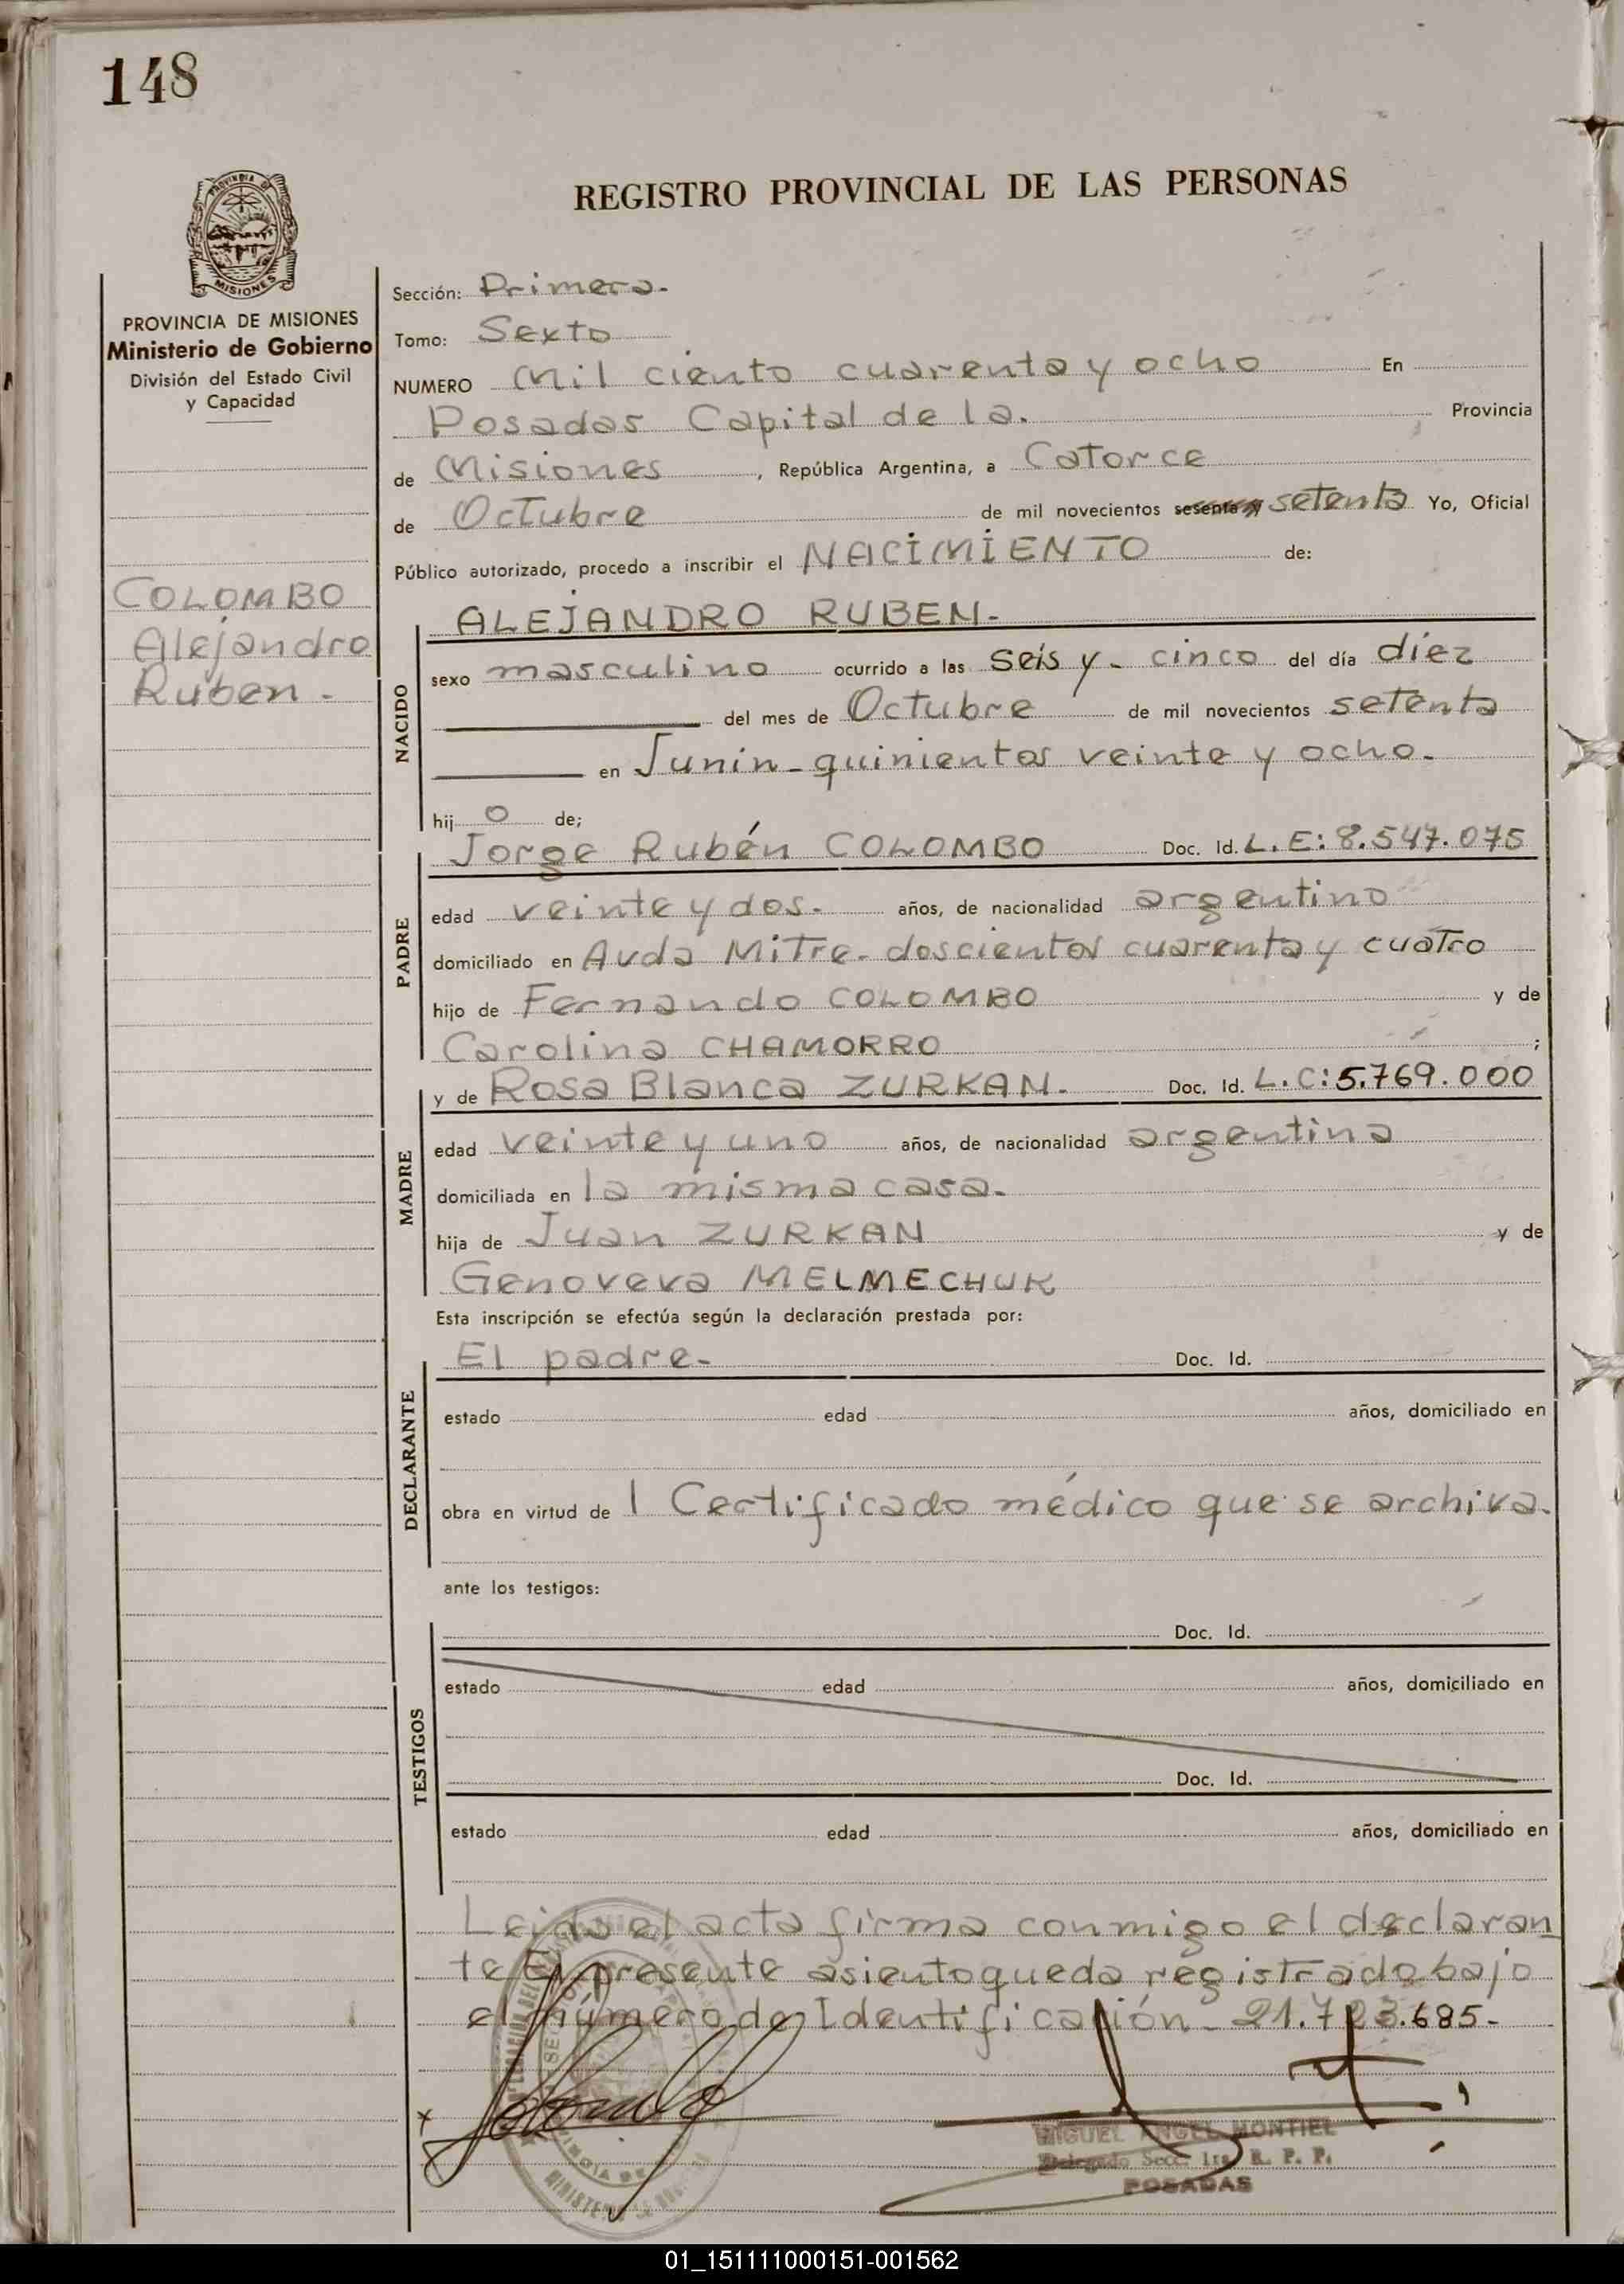 148
REGISTRO PROVINCIAL DE LAS PERSONAS
PROVINCIA DE
MISIONES
PROVINCIA DE MISIONES
Ministerio de Gobierno
División del Estado Civil
y Capacidad
COLOMBO
Alejandro
Ruben.-
Sección: Primera.
Tomo: Sexto
NUMERO Mil ciento cuarenta y ocho En
Posadas Capital de la. Provincia
de Misiones, República Argentina, a Catorce
de Octubre de mil novecientos sesenta y setenta Yo, Oficial
Público autorizado, procedo a inscribir el NACIMIENTO de:
NACIDO
ALEJANDRO RUBEN.-
sexo masculino ocurrido a las seis y - cinco del día diez
del mes de Octubre de mil novecientos setenta
en Junin - quinientos veinte y ocho.
hij o de;
PADRE
Jorge Rubén COLOMBO Doc. Id. L.E: 8.547.075
edad veinte y dos.- años, de nacionalidad argentino
domiciliado en Avda Mitre - doscientos cuarenta y cuatro
hijo de Fernando COLOMBO y de
Carolina CHAMORRO ;
MADRE
y de Rosa Blanca ZURKAN.- Doc. Id. L.C: 5.769.000
edad veinte y uno años, de nacionalidad argentina
domiciliada en la misma casa.
hija de Juan ZURKAN y de
Genoveva MELMECHUK
Esta inscripción se efectúa según la declaración prestada por:
DECLARANTE
El padre.- Doc. Id.
estado edad años, domiciliado en
obra en virtud de 1 Certificado médico que se archiva.
ante los testigos:
TESTIGOS
Doc. Id.
estado edad años, domiciliado en
Doc. Id.
estado edad años, domiciliado en
Leida el acta firma conmigo el declaran
te El presente asiento queda registrado bajo
el número de Identificación - 21.723.685-
MIGUEL ANGEL MONTIEL
Delegado Secc. 1ra R. P. P.
POSADAS
01_151111000151-001562